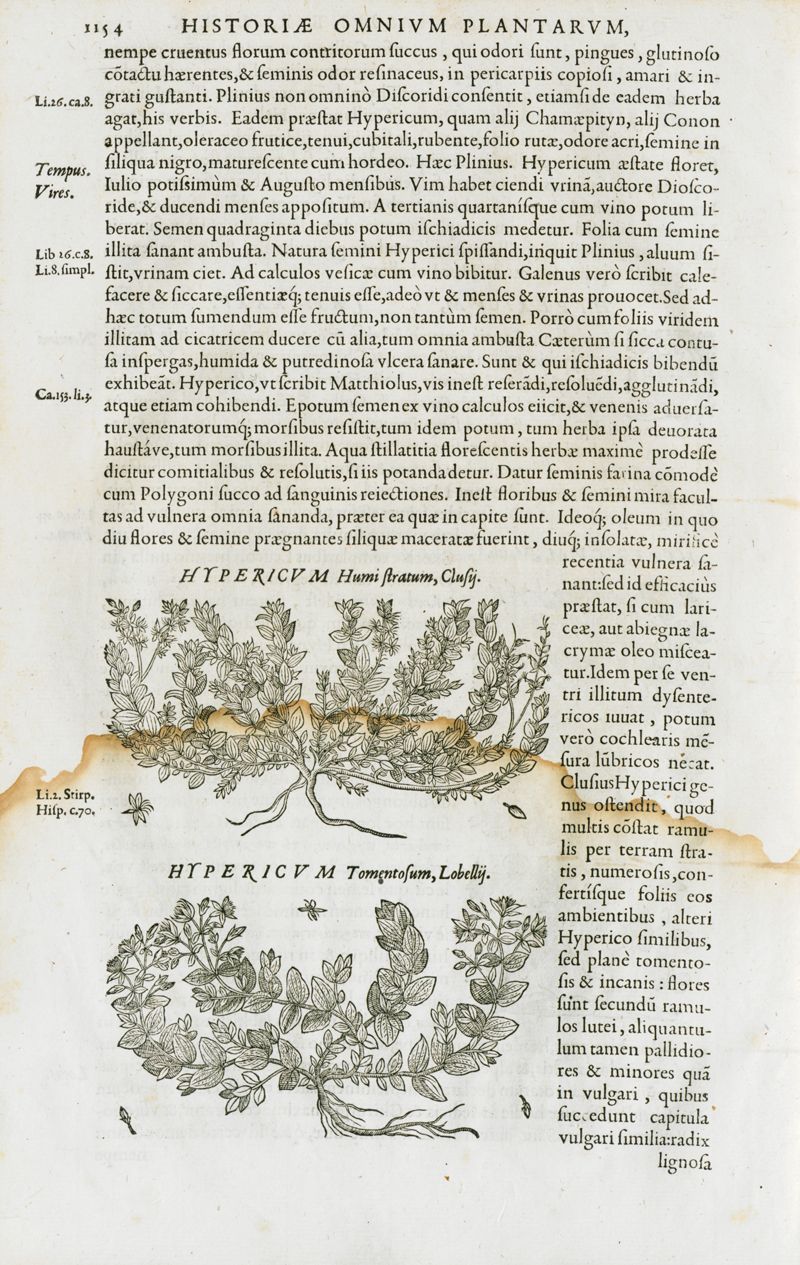 1154 HISTORIÆ OMNIVM PLANTARVM,
nempe cruentus florum contritorum ſuccus , qui odori ſunt , pingues , glutinoſo
cōtactu hærentes,& ſeminis odor reſinaceus, in pericarpiis copioſi , amari & in-
Li.26.ca.8.
grati guſtanti. Plinius non omninò Diſcoridi conſentit , etiamſi de eadem herba
agat,his verbis. Eadem præſtat Hypericum, quam alij Chamæpityn, alij Conon
appellant,oleraceo frutice,tenui,cubitali,rubente,folio rutæ,odore acri,ſemine in
Tempus.
ſiliqua nigro,matureſcente cum hordeo. Hæc Plinius. Hypericum æſtate floret,
Vires.
Iulio potiſſimùm & Auguſto menſibus. Vim habet ciendi vrinā,auctore Dioſco-
ride,& ducendi menſes appoſitum. A tertianis quartaníſque cum vino potum li-
berat. Semen quadraginta diebus potum iſchiadicis medetur. Folia cum ſemine
Lib 26.c.8.
illita ſanant ambuſta. Natura ſemini Hyperici ſpiſſandi,inquit Plinius , aluum ſi-
Li.8.ſimpl.
ſtit,vrinam ciet. Ad calculos veſicæ cum vino bibitur. Galenus verò ſcribit cale-
facere & ſiccare,eſſentiæq́; tenuis eſſe,adeò vt & menſes & vrinas prouocet.Sed ad-
hæc totum ſumendum eſſe fructum,non tantùm ſemen. Porrò cum foliis viridem
illitam ad cicatricem ducere cū alia,tum omnia ambuſta Cæterùm ſi ſicca contu-
ſa inſpergas,humida & putredinoſa vlcera ſanare. Sunt & qui iſchiadicis bibendū
Ca.153.li.3.
exhibeāt. Hyperico,vt ſcribit Matthiolus,vis ineſt reſerādi,reſoluēdi,agglutinādi,
atque etiam cohibendi. Epotum ſemen ex vino calculos eiicit,& venenis aduerſa-
tur,venenatorumq́; morſibus reſiſtit,tum idem potum , tum herba ipſa deuorata
hauſtáve,tum morſibus illita. Aqua ſtillatitia floreſcentis herbæ maximè prodeſſe
dicitur comitialibus & reſolutis,ſi iis potanda detur. Datur ſeminis farina cōmodè
cum Polygoni ſucco ad ſanguinis reiectiones. Ineſt floribus & ſemini mira facul-
tas ad vulnera omnia ſananda, præter ea quæ in capite ſunt. Ideoq́; oleum in quo
diu flores & ſemine prægnantes ſiliquæ maceratæ fuerint , diuq́; inſolatæ, mirificè
HYPERICVM Humi ſtratum, Cluſij.
recentia vulnera ſa-
nant:ſed id efficaciùs
præſtat, ſi cum lari-
ceæ, aut abiegnæ la-
crymæ oleo miſcea-
tur.Idem per ſe ven-
tri illitum dyſente-
ricos iuuat , potum
verò cochlearis mē-
ſura lūbricos necat.
Li.2. Stirp.
Hiſp. c.70.
Cluſius Hyperici ge-
nus oſtendit , quod
multis cōſtat ramu-
lis per terram ſtra-
tis , numeroſis,con-
fertíſque foliis eos
ambientibus , alteri
Hyperico ſimilibus,
ſed planè tomento-
ſis & incanis : flores
ſunt ſecundū ramu-
los lutei , aliquantu-
lum tamen pallidio-
res & minores quā
in vulgari , quibus
ſuccedunt capitula
vulgari ſimilia:radix
lignoſa
HYPERICVM Tomentoſum, Lobellij.